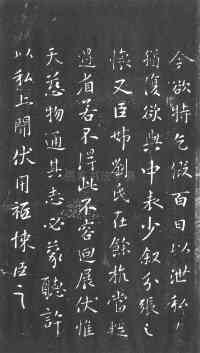 今欲特乞假百日以泄私
猶復欲與中表少叙分張之
懷又臣姊劉氏在餘杭當
過省若不得此不容迴展伏惟
天慈物通其志必蒙聽許
以私上聞伏用祗悚臣之